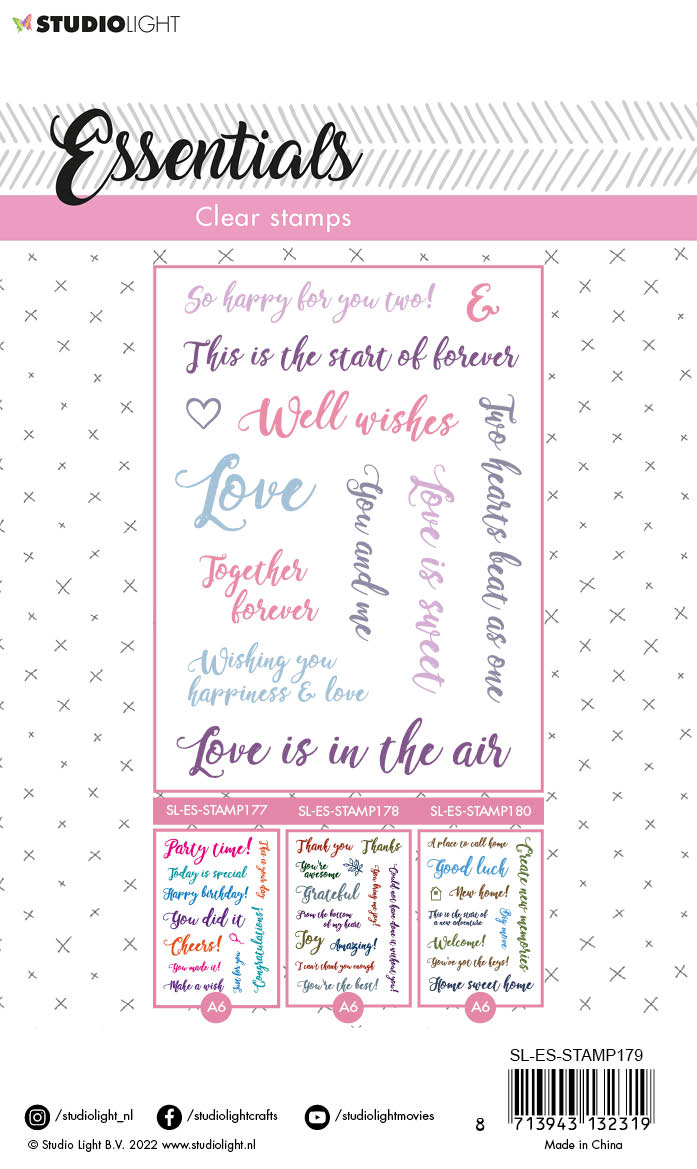 STUDIOLIGHT
Essentials
Clear stamps
So happy for you two!
&
This is the start of forever
Well wishes
Two hearts beat as one
Love
You and me
Love is sweet
Together
forever
Wishing you
happiness & love
Love is in the air
SL-ES-STAMP177
SL-ES-STAMP178
SL-ES-STAMP180
Party time!
Today is special
Happy birthday!
You did it
Cheers!
You made it!
Make a wish
This is your day
Just for you
Congratulations!
A6
Thank you
Thanks
You're
awesome
Grateful
From the bottom
of my heart
Joy
Amazing!
I can't thank you enough
You're the best!
You bring me joy!
Could not have done it without you!
A6
A place to call home
Good luck
New home!
This is the start of
a new adventure
Welcome!
You've got the keys!
Home sweet home
Big move
Create new memories
A6
SL-ES-STAMP179
8 713943 132319
Made in China
/studiolight_nl
/studiolightcrafts
/studiolightmovies
© Studio Light B.V. 2022 www.studiolight.nl